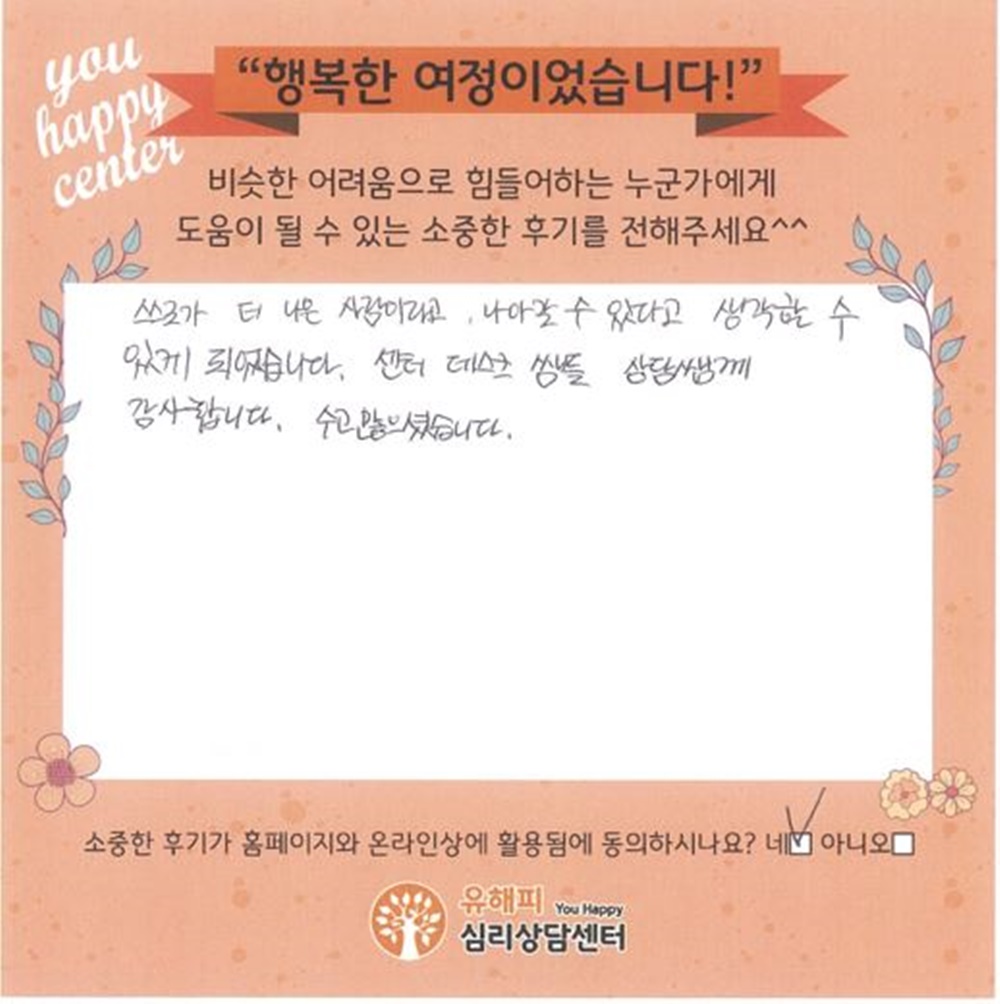 you
happy
center
“행복한 여정이었습니다!”
비슷한 어려움으로 힘들어하는 누군가에게
도움이 될 수 있는 소중한 후기를 전해주세요^^
스스로가 더 나은 사람이라고, 나아갈 수 있다고 생각할 수
있게 되었습니다. 센터 데스크 쌤들 상담쌤께
감사합니다. 수고많으셨습니다.
소중한 후기가 홈페이지와 온라인상에 활용됨에 동의하시나요? 네 아니오
유해피 You Happy
심리상담센터